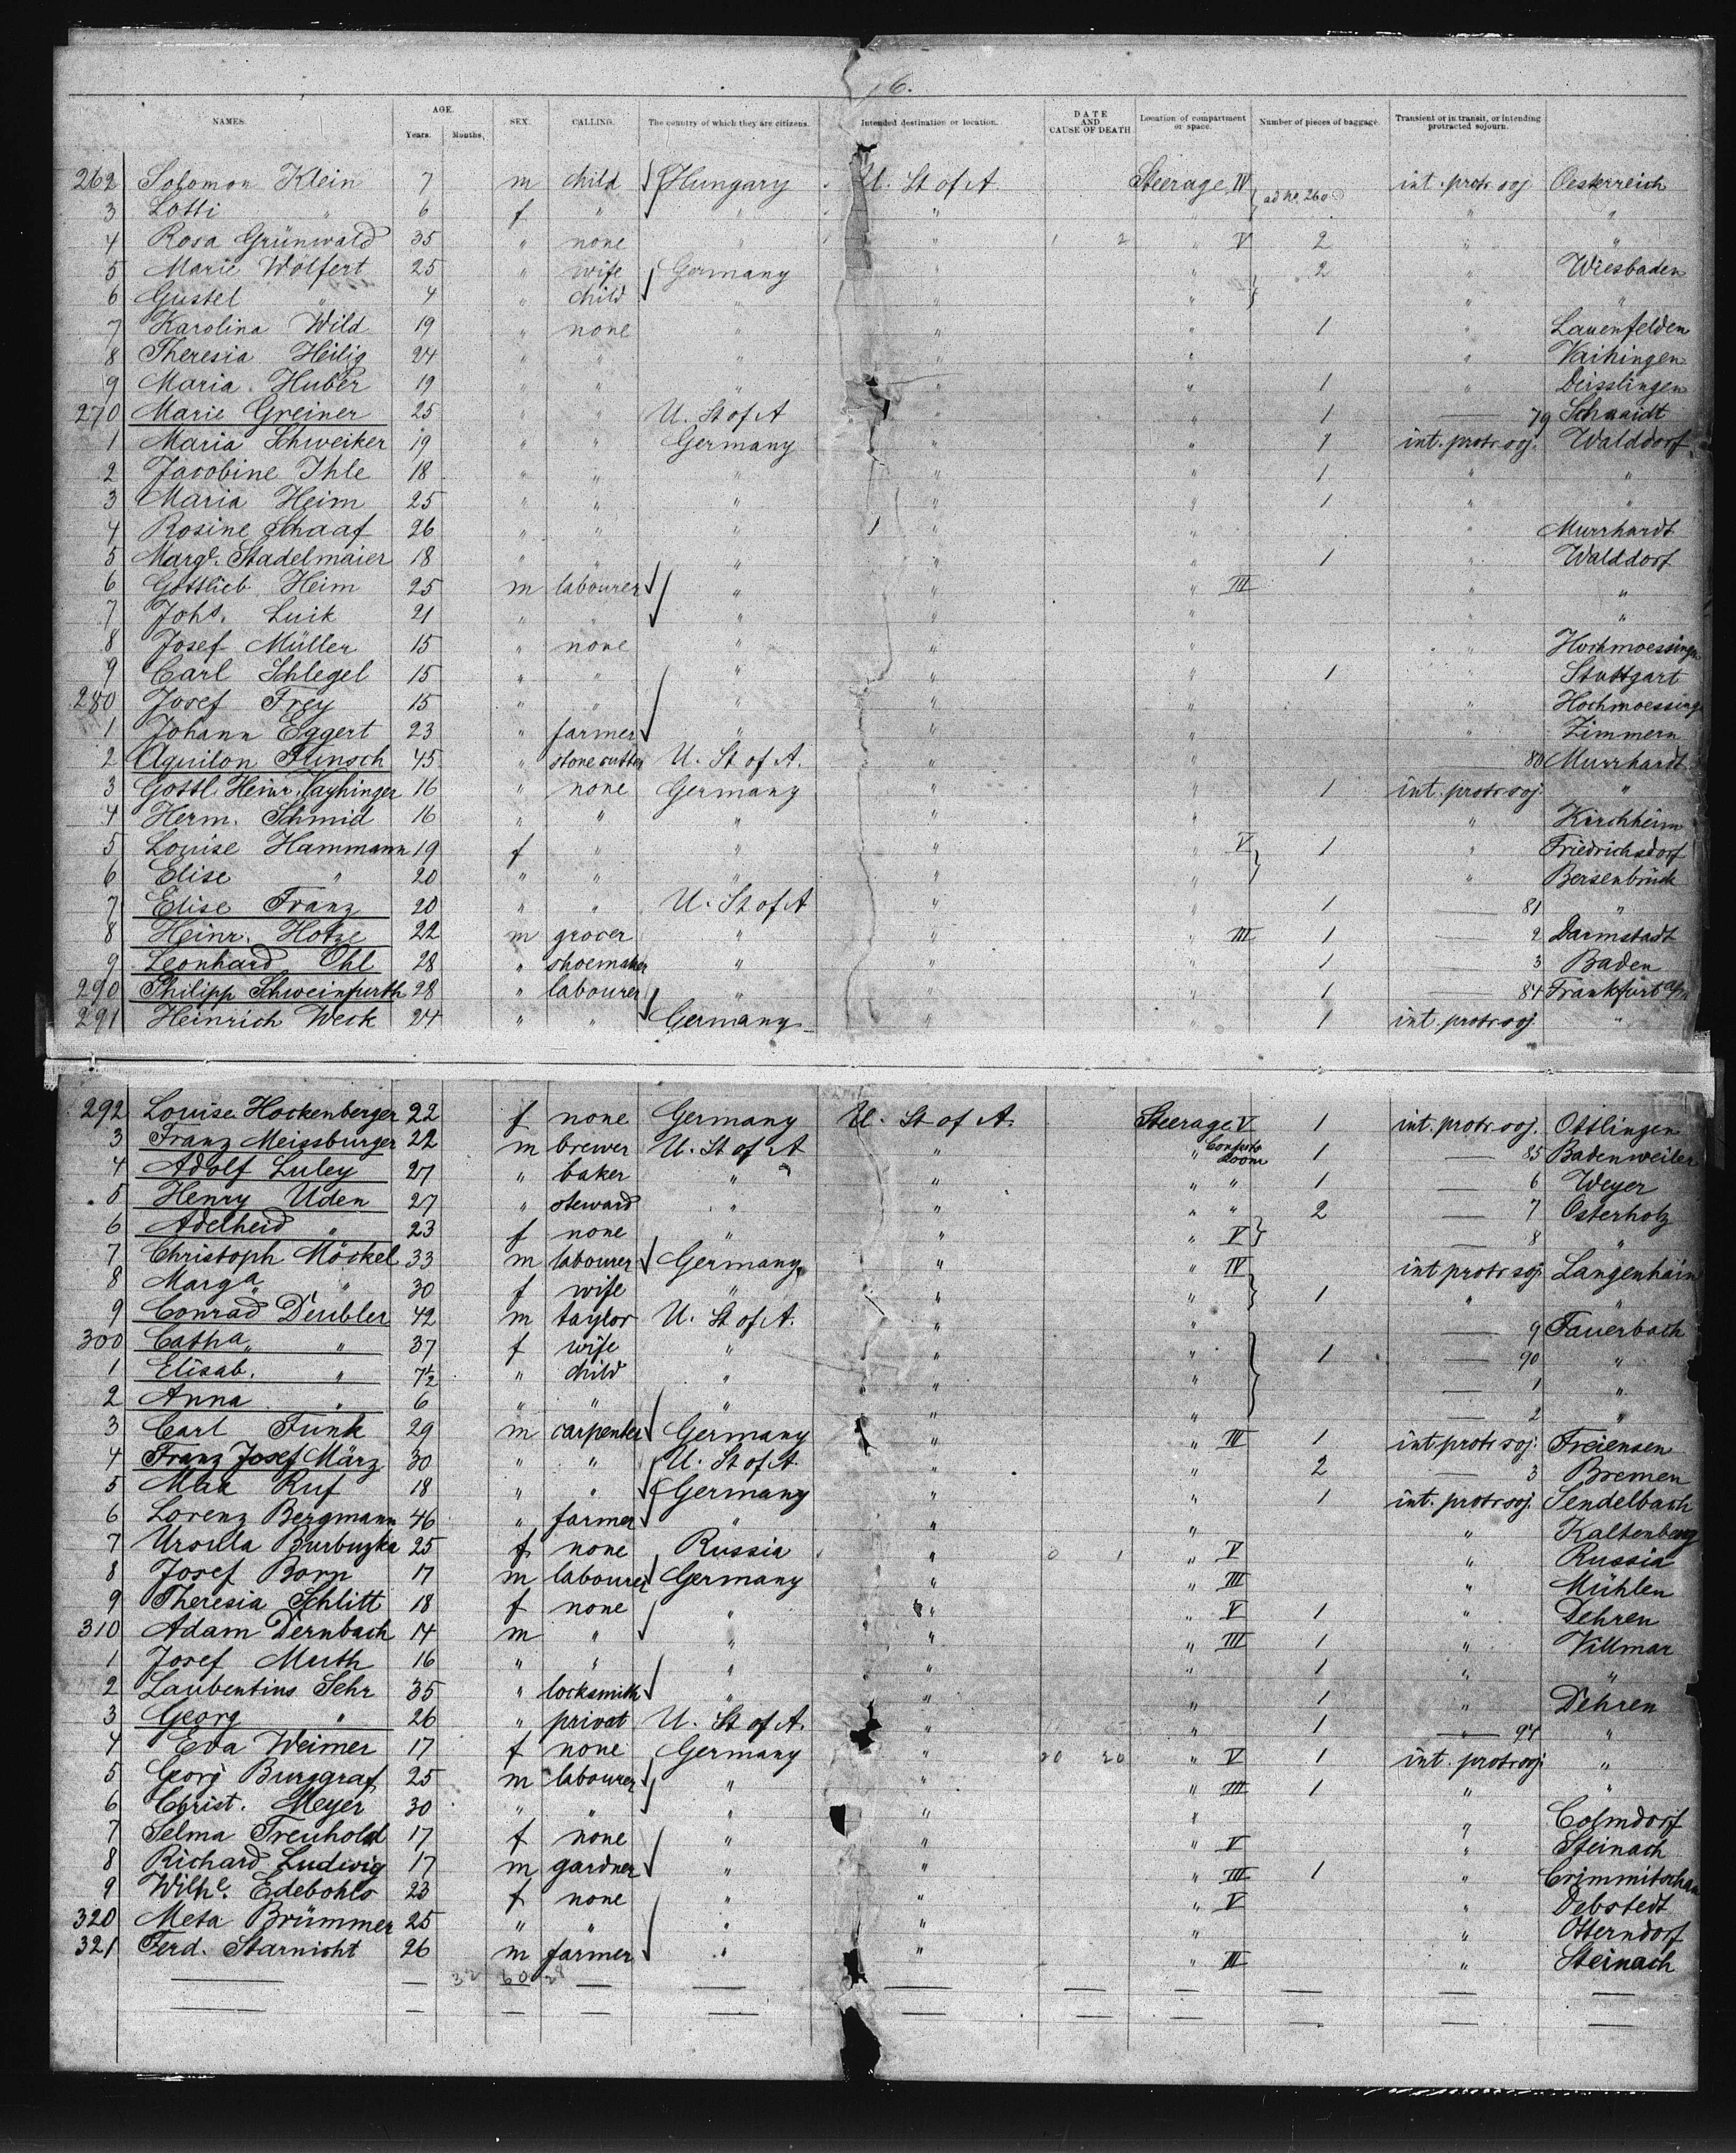 6.
NAMES. AGE. Years. Months. SEX. CALLING. The country of which they are citizens. Intended destination or location. DATE AND CAUSE OF DEATH Location of compartment or space. Number of pieces of baggage. Transient or in transit, or intending protracted sojourn.
262 Solomon Klein 7 m child Hungary U. St of A Steerage IV ad No. 260 int. protr. soj Oesterreich
3 Lotti " 6 f " " " " " "
4 Rosa Grünwald 35 " none " " 1 2 " V 2 " "
5 Marie Wolfert 25 " wife Germany " " 2 " Wiesbaden
6 Gustel " 4 " child " " " " "
7 Karolina Wild 19 " none " " " 1 " Lauenfelden
8 Theresia Heilig 24 " " " " " " Vaihingen
9 Maria Huber 19 " " " " " 1 " Deisslingen
270 Marie Greiner 25 " " U. St of A " " 1 — 79 Schnaidt
1 Maria Schweiker 19 " " Germany " " 1 int. protr soj. Walddorf
2 Jacobine Ihle 18 " " " " " 1 " "
3 Maria Heim 25 " " " " " 1 " "
4 Rosine Schaaf 26 " " " " " " Murrhardt
5 Margt. Stadelmaier 18 " " " " " 1 " Walddorf
6 Gottlieb Heim 25 m labourer " " " III " "
7 Johs. Luik 21 " " " " " " "
8 Josef Müller 15 " none " " " " Hochmoessingen
9 Carl Schlegel 15 " " " " " 1 " Stuttgart
280 Josef Frey 15 " " " " " " Hochmoessing
1 Johann Eggert 23 " farmer " " " " Zimmern
2 Aquilon Flinsch 45 " stone cutter U. St of A. " " — 80 Murrhardt
3 Gottl. Heinr. Vayhinger 16 " none Germany " " 1 int. protr soj. "
4 Herm. Schmid 16 " " " " " " Kirchheim
5 Louise Hammann 19 f " " " " V 1 " Friedrichsdorf
6 Elise " 20 " " " " " " Bersenbrück
7 Elise Franz 20 " " U. St of A " " 1 — 81 "
8 Heinr. Hotze 22 m grocer " " " III 1 — 2 Darmstadt
9 Leonhard Ohl 28 " shoemaker " " " 1 — 3 Baden
290 Philipp Schweinfurth 28 " labourer " " " 1 — 84 Frankfurt a/m
291 Heinrich Weck 24 " " Germany " " 1 int. protr soj. "
292 Louise Hockenberger 22 f none Germany U. St of A. Steerage V 1 int. protr soj. Ottlingen
3 Franz Meissburger 22 m brewer U. St of A " " Room 1 — 85 Badenweiler
4 Adolf Luley 27 " baker " " " " 1 — 6 Weyer
5 Henry Uden 27 " steward " " " " 2 — 7 Osterholz
6 Adelheid " 23 f none " " " V — 8 "
7 Christoph Möckel 33 m labourer Germany " " IV int protr soj. Langenhain
8 Marga " 30 f wife " " " 1 " "
9 Conrad Deubler 42 m taylor U. St of A. " " — 9 Fauerbach
300 Catha " 37 f wife " " " 1 — 90 "
1 Elisab. " 7½ " child " " " — 1 "
2 Anna " 6 " " " " " — 2 "
3 Carl Funk 29 m carpenter Germany " " III 1 int protr soj. Freiensen
4 Franz Josef März 30 " " U. St of A. " " 2 — 3 Bremen
5 Max Ruf 18 " " Germany " " 1 int. protr soj. Sendelbach
6 Lorenz Bergmann 46 " farmer " " " " Kaltenberg
7 Ursula Burbuzka 25 f none Russia " 0 1 " V " Russia
8 Josef Born 17 m labourer Germany " " III " Mühlen
9 Theresia Schlitt 18 f none " " " V 1 " Dehren
310 Adam Dernbach 14 m " " " " III 1 " Villmar
1 Josef Muth 16 " " " " " 1 " "
2 Laubentius Sehr 35 " locksmith " " " 1 " Dehren
3 Georg " 26 " privat U. St of A. " " 1 — 94 "
4 Eva Weimer 17 f none Germany " 20 20 " V 1 int. protr soj. "
5 Georg Burggraf 25 m labourer " " " III 1 " "
6 Christ. Meyer 30 " " " " " " Colmdorf
7 Selma Treuhold 17 f none " " " V " Steinach
8 Richard Ludwig 17 m gardner " " " III 1 " Crimmitschau
9 Wilhe. Edebohls 23 f none " " " V " Debstedt
320 Meta Brümmer 25 " " " " " " Otterndorf
321 Ferd. Starnicht 26 m farmer " " " III " Steinach
32 60 28